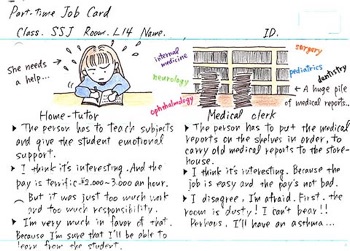 Part-time Job Card
Class. SSJ Room. L14 Name. ID.
She needs
a help...
internal
medicine
neurology
ophthalmology
surgery
pediatrics
dentistry
A huge pile
of medical reports..
Home-tutor
▶ The person has to teach subjects
and give the student emotional
support.
▶ I think it's interesting. And the
pay is terrific ¥2,000~3,000 an hour.
But it was just too much work
and too much responsibility.
▶ I'm very much in favor of that.
Because I'm sure that I'll be able to
learn from the student.
Medical clerk
▶ The person has to put the medical
reports on the shelves in order, to
carry old medical reports to the store-
house.
▶ I think it's interesting. Because the
job is easy and the pay's not bad.
▶ I disagree, I'm afraid. First, the
room is dusty! I can't bear!!
Perhaps, I'll have an asthma...